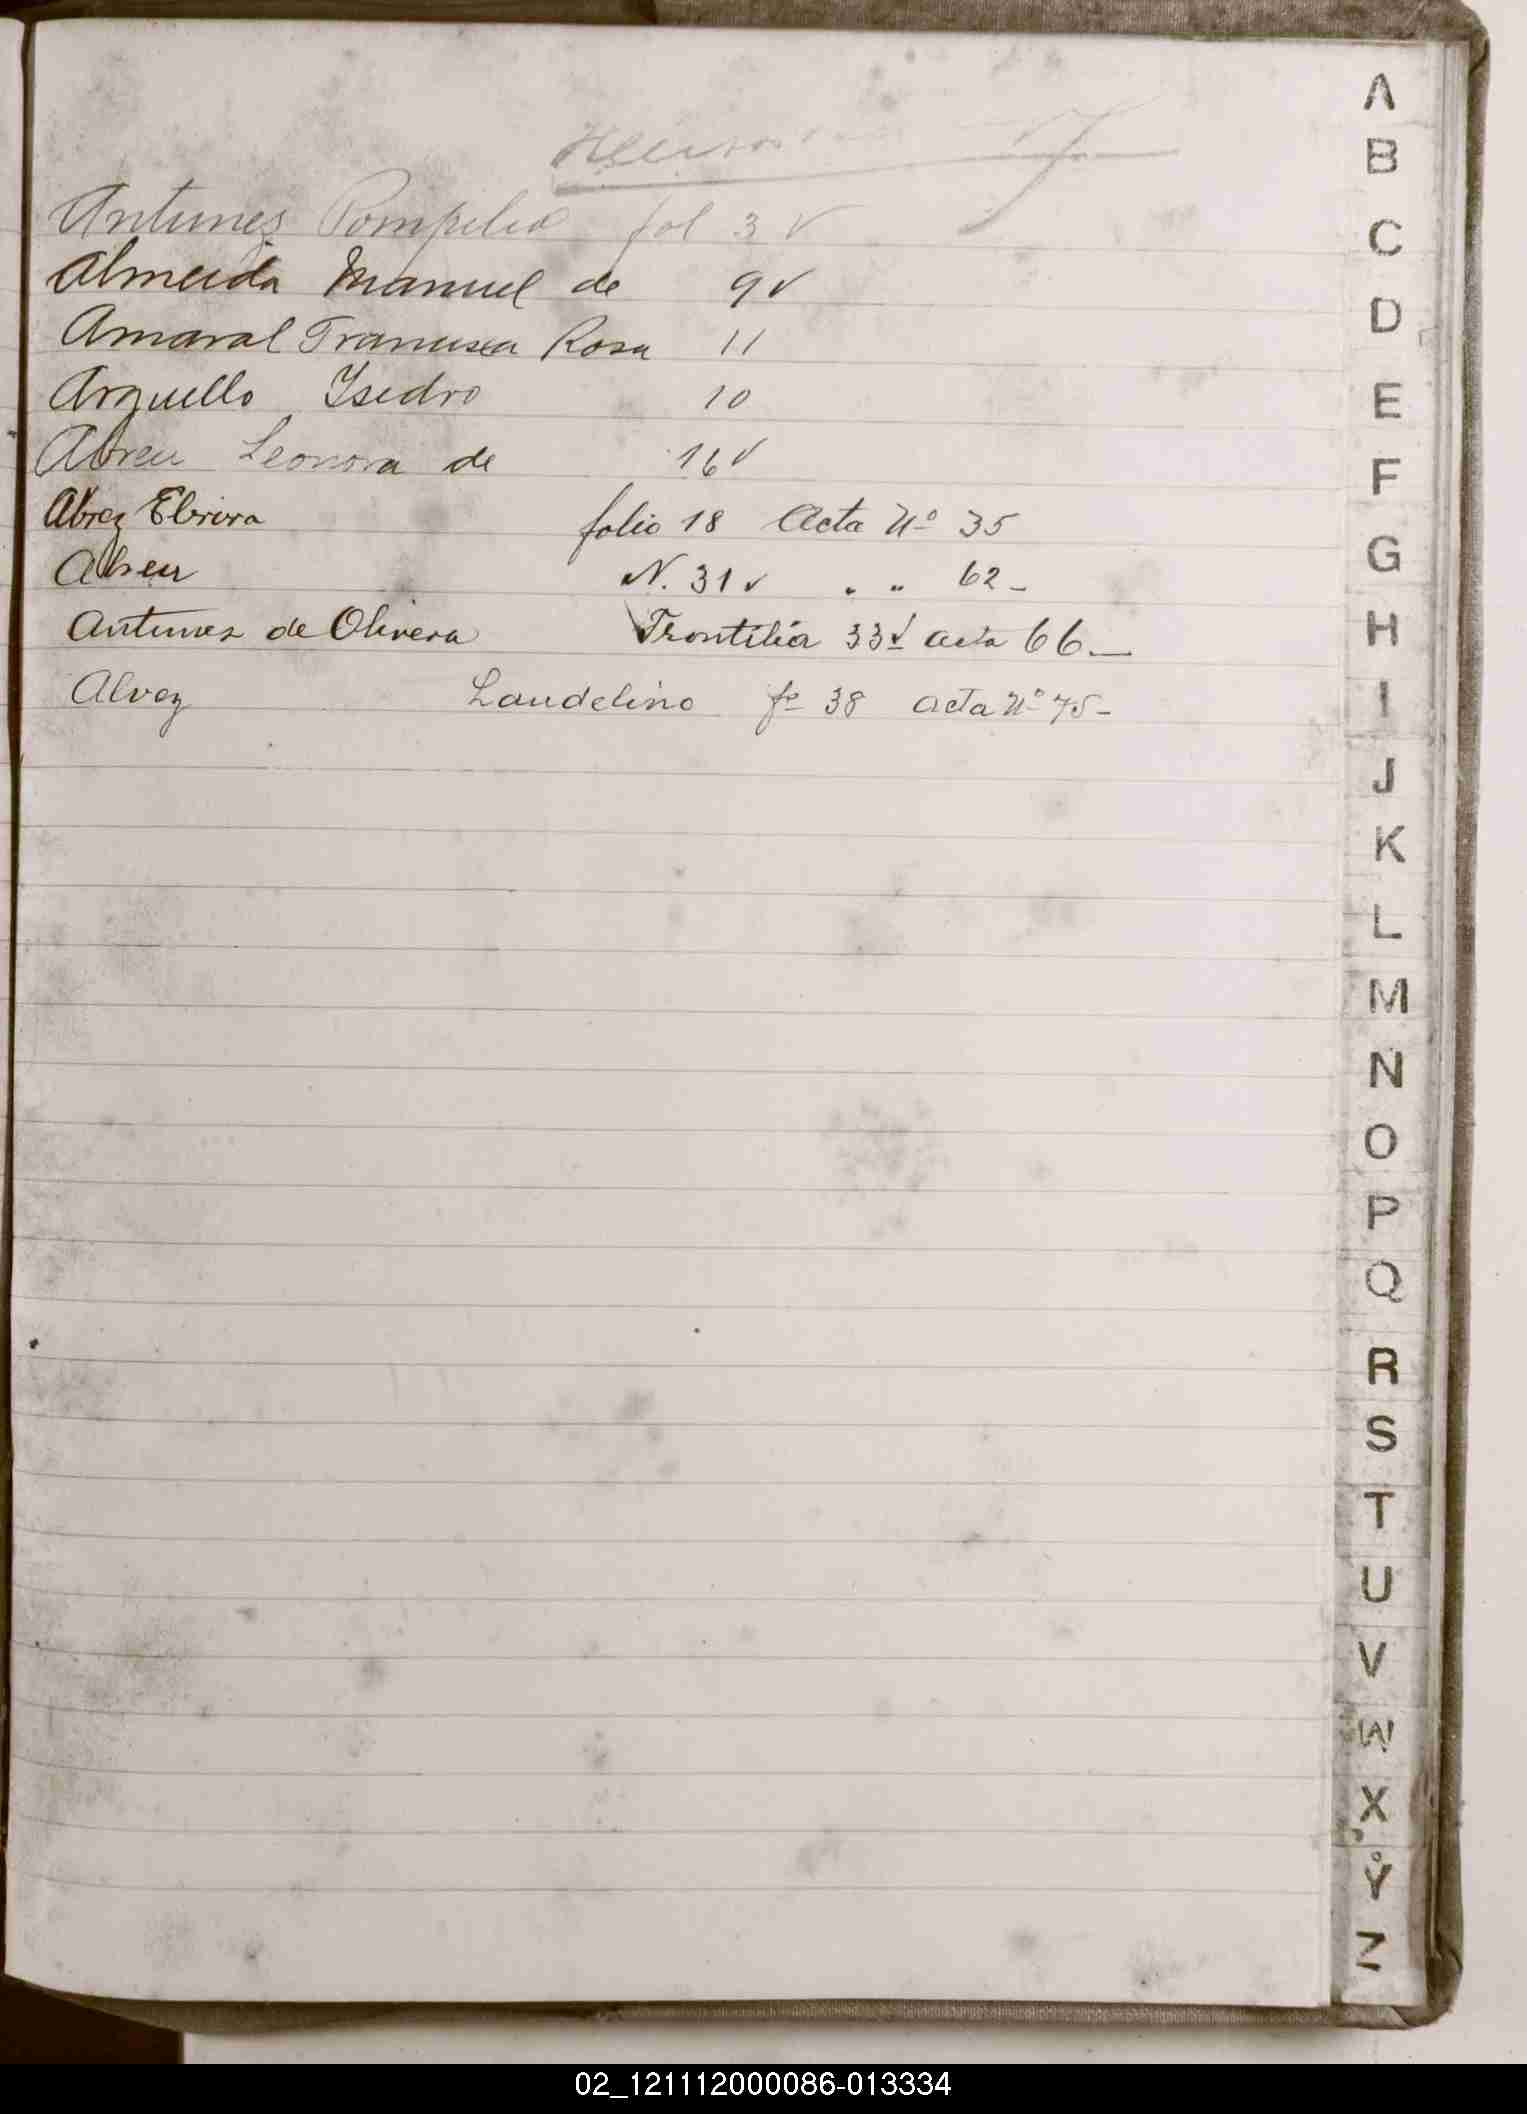 Antunes Pompelio fol 3 v
Almeida Manuel de 9 v
Amaral Francisca Rosa 11
Arguello Ysidro 10
Abreu Leonora de 16 v
Abrez Elvira folio 18 Acta Nº 35
Abreu N. 31 v " " 62 -
Antunez de Olivera Frontilia 33 v acta 66 -
Alvez Laudelino fº 38 acta Nº 75 -
A
B
C
D
E
F
G
H
I
J
K
L
M
N
O
P
Q
R
S
T
U
V
W
X
Y
Z
02_121112000086-013334